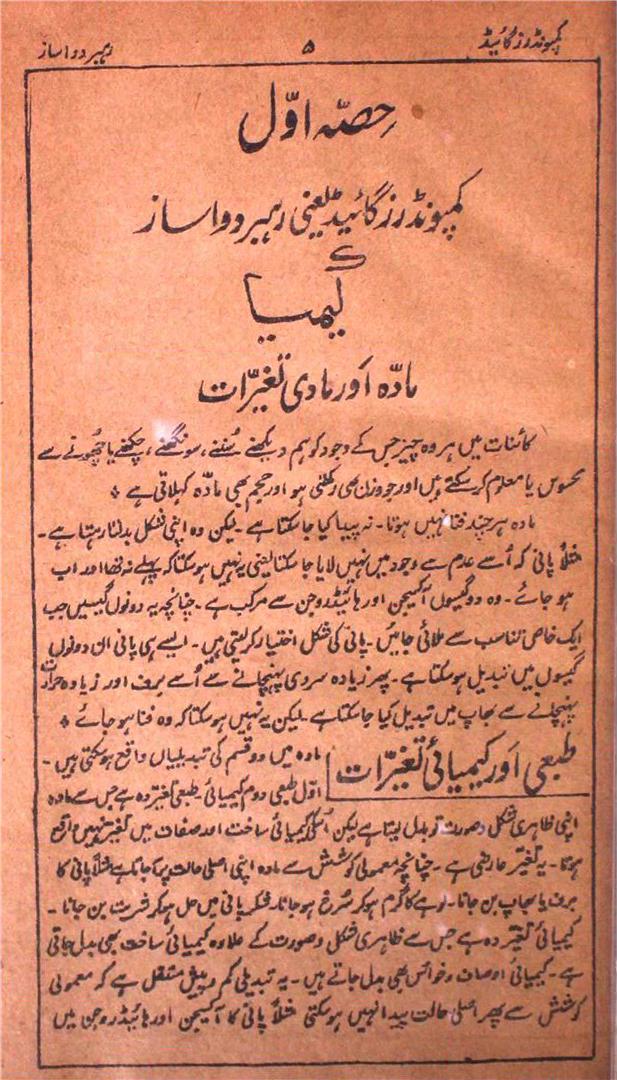 کمپونڈرز گائیڈ ۵ رہبر دواساز
حصّہ اوّل
کمپونڈرز گائیڈ یعنی رہبر دواساز
کیمیا
مادّہ اور مادی تغیّرات
کائنات میں ہر وہ چیز جس کے وجود کو ہم دیکھنے، سُننے، سونگھنے، چکھنے یا چُھونے سے
محسوس یا معلوم کر سکتے ہیں اور جو وزن بھی رکھتی ہو اور حجم بھی مادّہ کہلاتی ہے ٭
مادہ ہر چند فنا نہیں ہوتا۔ نہ پیدا کیا جا سکتا ہے۔ لیکن وہ اپنی شکل بدلتا رہتا ہے۔
مثلاً پانی کہ اُسے عدم سے وجود میں نہیں لایا جا سکتا یعنی یہ نہیں ہو سکتا کہ پہلے نہ تھا اور اب
ہو جائے۔ وہ دو گیسوں آکسیجن اور ہائیڈروجن سے مرکب ہے۔ چنانچہ یہ دونوں گیسیں جب
ایک خاص تناسب سے ملائی جائیں۔ پانی کی شکل اختیار کر لیتی ہیں۔ ایسے ہی پانی ان دونوں
گیسوں میں تبدیل ہو سکتا ہے۔ پھر زیادہ سردی پہنچانے سے اُسے برف اور زیادہ حرارت
پہنچانے سے بھاپ میں تبدیل کیا جا سکتا ہے۔ لیکن یہ نہیں ہو سکتا کہ وہ فنا ہو جائے ٭
طبعی اور کیمیائی تغیّرات
مادہ میں دو قسم کی تبدیلیاں واقع ہو سکتی ہیں۔
اوّل طبعی دوم کیمیائی۔ طبعی تغیّر وہ ہے جس سے مادہ
اپنی ظاہری شکل و صورت تو بدل لیتا ہے لیکن اُسکی کیمیائی ساخت اور صفات میں تغیّر نہیں واقع
ہوتا۔ یہ تغیّر عارضی ہے۔ چنانچہ معمولی کوشش سے مادہ اپنی اصلی حالت پر آجاتا ہے مثلاً پانی کا
برف یا بھاپ بن جانا۔ لوہے کا گرم ہو کر سُرخ ہو جانا۔ شکر پانی میں حل ہو کر شربت بن جانا۔
کیمیائی تغیّر وہ ہے جس سے ظاہری شکل و صورت کے علاوہ کیمیائی ساخت بھی بدل جاتی
ہے۔ کیمیائی اوصاف و خواص بھی بدل جاتے ہیں۔ یہ تبدیلی کم و بیش مستقل ہے کہ معمولی
کوشش سے پھر اصلی حالت پیدا نہیں ہو سکتی مثلاً پانی کا آکسیجن اور ہائیڈروجن میں